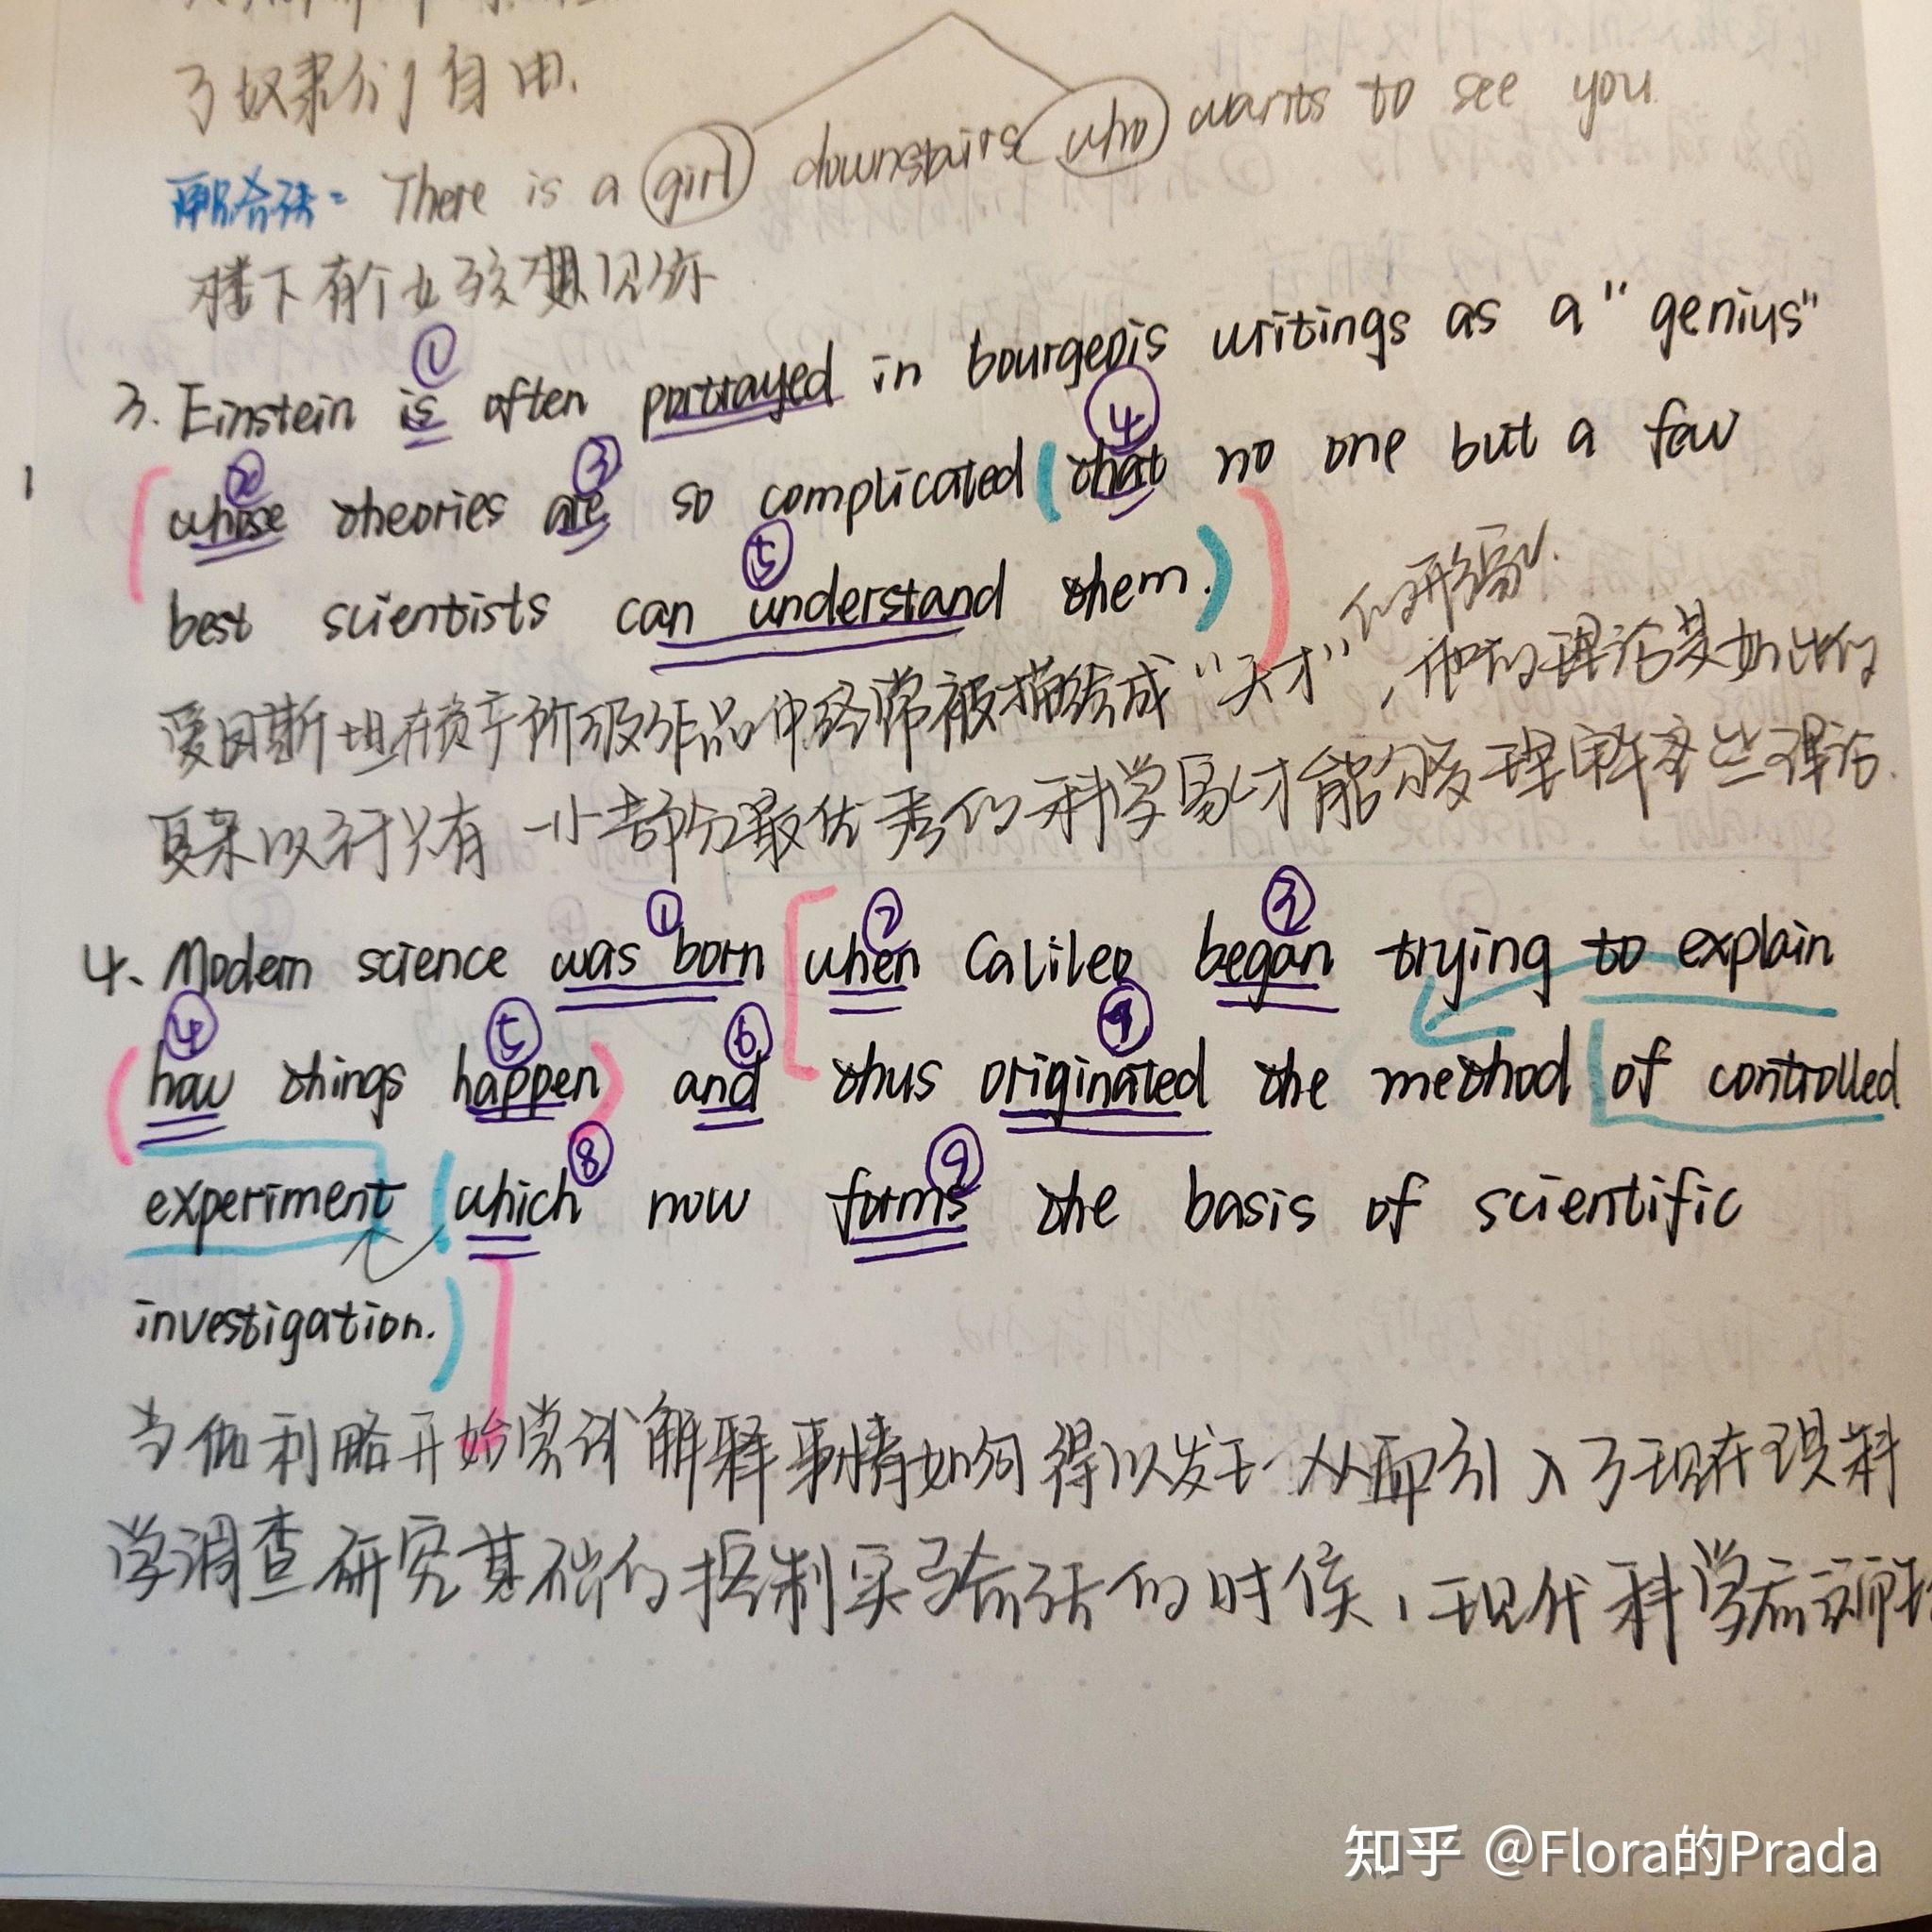 了奴隶们自由.
融合法: There is a girl downstairs who wants to see you.
楼下有个女孩想见你
①
3. Einstein is often portrayed in bourgeois writings as a "genius"
② ③ ④
whose theories are so complicated (that no one but a few
⑤
best scientists can understand them.)
爱因斯坦在资产阶级作品中经常被描绘成"天才", 他的理论是如此的
复杂以致于只有一小部分最优秀的科学家才能够理解这些理论.
① ② ③
4. Modern science was born [when Galileo began trying to explain
④ ⑤ ⑥ ⑦
(how things happen) and thus originated the method [of controlled
⑧ ⑨
experiment (which now forms the basis of scientific
investigation.) ]
当伽利略开始尝试解释事情如何得以发生从而引入了现在现科
学调查研究基础的控制实验法的时候,现代科学应
知乎 @Flora的Prada